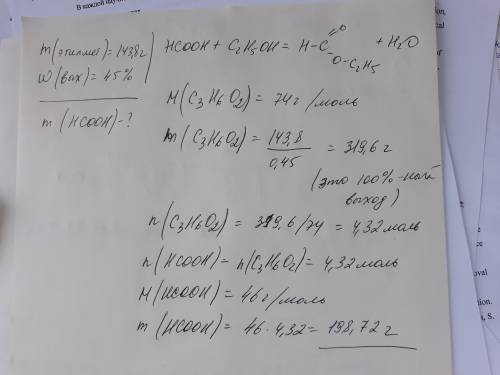 В каждой
m(этилмет)=143,8г
W(вых)=45%
m(HCOOH)-?
HCOOH + C2H5OH = H-C + H2O
O
O-C2H5
M(C3H6O2) = 74г/моль
m(C3H6O2) = 143,8 / 0,45 = 319,6 г
(это 100%-ный
выход)
n(C3H6O2) = 319,6/74 = 4,32 моль
n(HCOOH) = n(C3H6O2) = 4,32 моль
M(HCOOH) = 46 г/моль
m(HCOOH) = 46·4,32 = 198,72 г